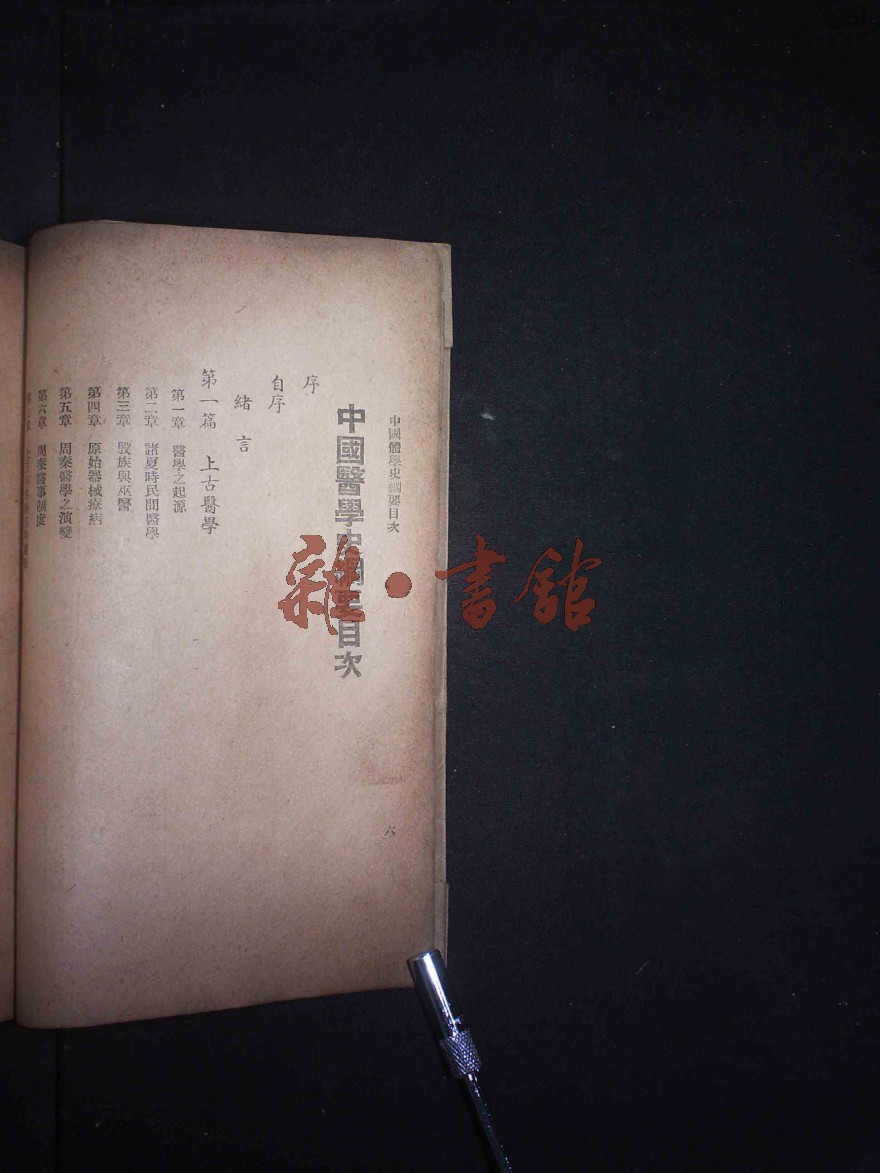 中國體學史綱要目次
中國醫學史綱要目次
序
自序
緒言
第一篇 上古醫學
第一章 醫學之起源
第二章 諸夏時民間醫學
第三章 殷族與巫醫
第四章 原始器械療病
第五章 周秦醫學之演變
第六章 周秦醫事制度
六
雜·書館